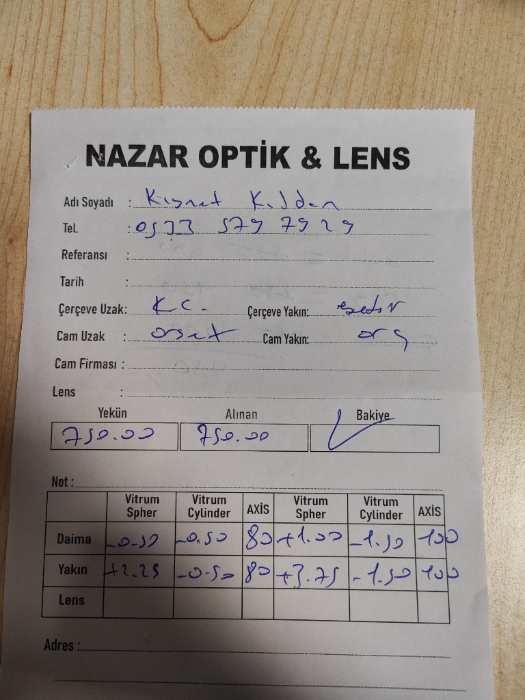 NAZAR OPTİK & LENS
Adı Soyadı : Kısmet
Tel. : 0533 579 7929
Referansı :
Tarih :
Çerçeve Uzak: K.C. Çerçeve Yakın:
Cam Uzak : Cam Yakın: org
Cam Firması :
Lens :
Yekün Alınan Bakiye
750.00 750.00
Not :
Vitrum Spher Vitrum Cylinder AXİS Vitrum Spher Vitrum Cylinder AXİS
Daima -0.50 -0.50 80 +1.00 -1.50 100
Yakın +2.25 -0.50 80 +3.75 -1.50 100
Lens
Adres :